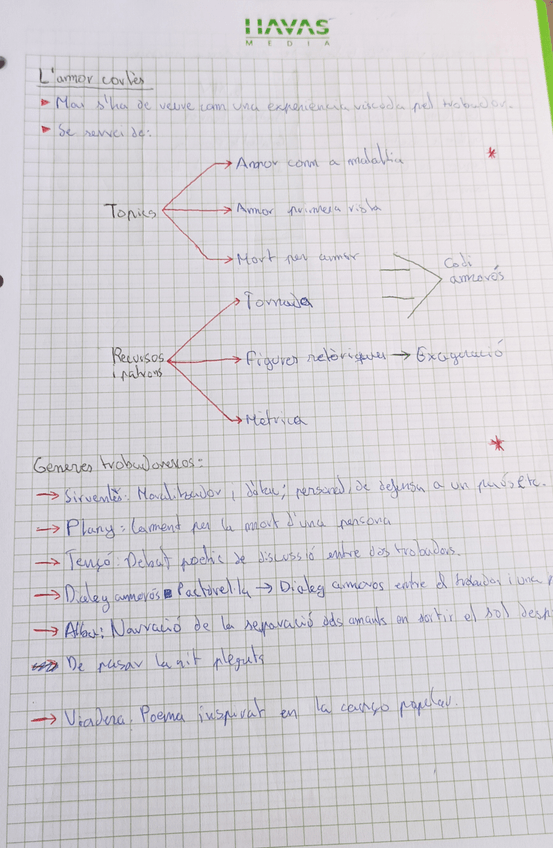 HAVAS
MEDIA
L'amor cortès
Mai s'ha de veure com una experiencia viscuda pel trobador.
Se servei de:
Amor com a malaltia
Topics
Amor primera vista
Mort per amor
Codi
amorós
Tornada
Recursos
i patrons
Figures retòriques → Exageració
Mètrica
Generes trobadorescos:
→ Sirventès: Moralitzador, d'atac; personal, de defensa a un país etc.
→ Plany: Lament per la mort d'una persona
→ Tençó: Debat poetic de discussió entre dos trobadors.
→ Dialeg amorós Pastorel·la → Dialeg amoros entre el trobador i una
→ Alba: Narració de la separació dels amants en sortir el sol desp
De pasar la nit plegats
→ Viadera. Poema inspirat en la canço popular.